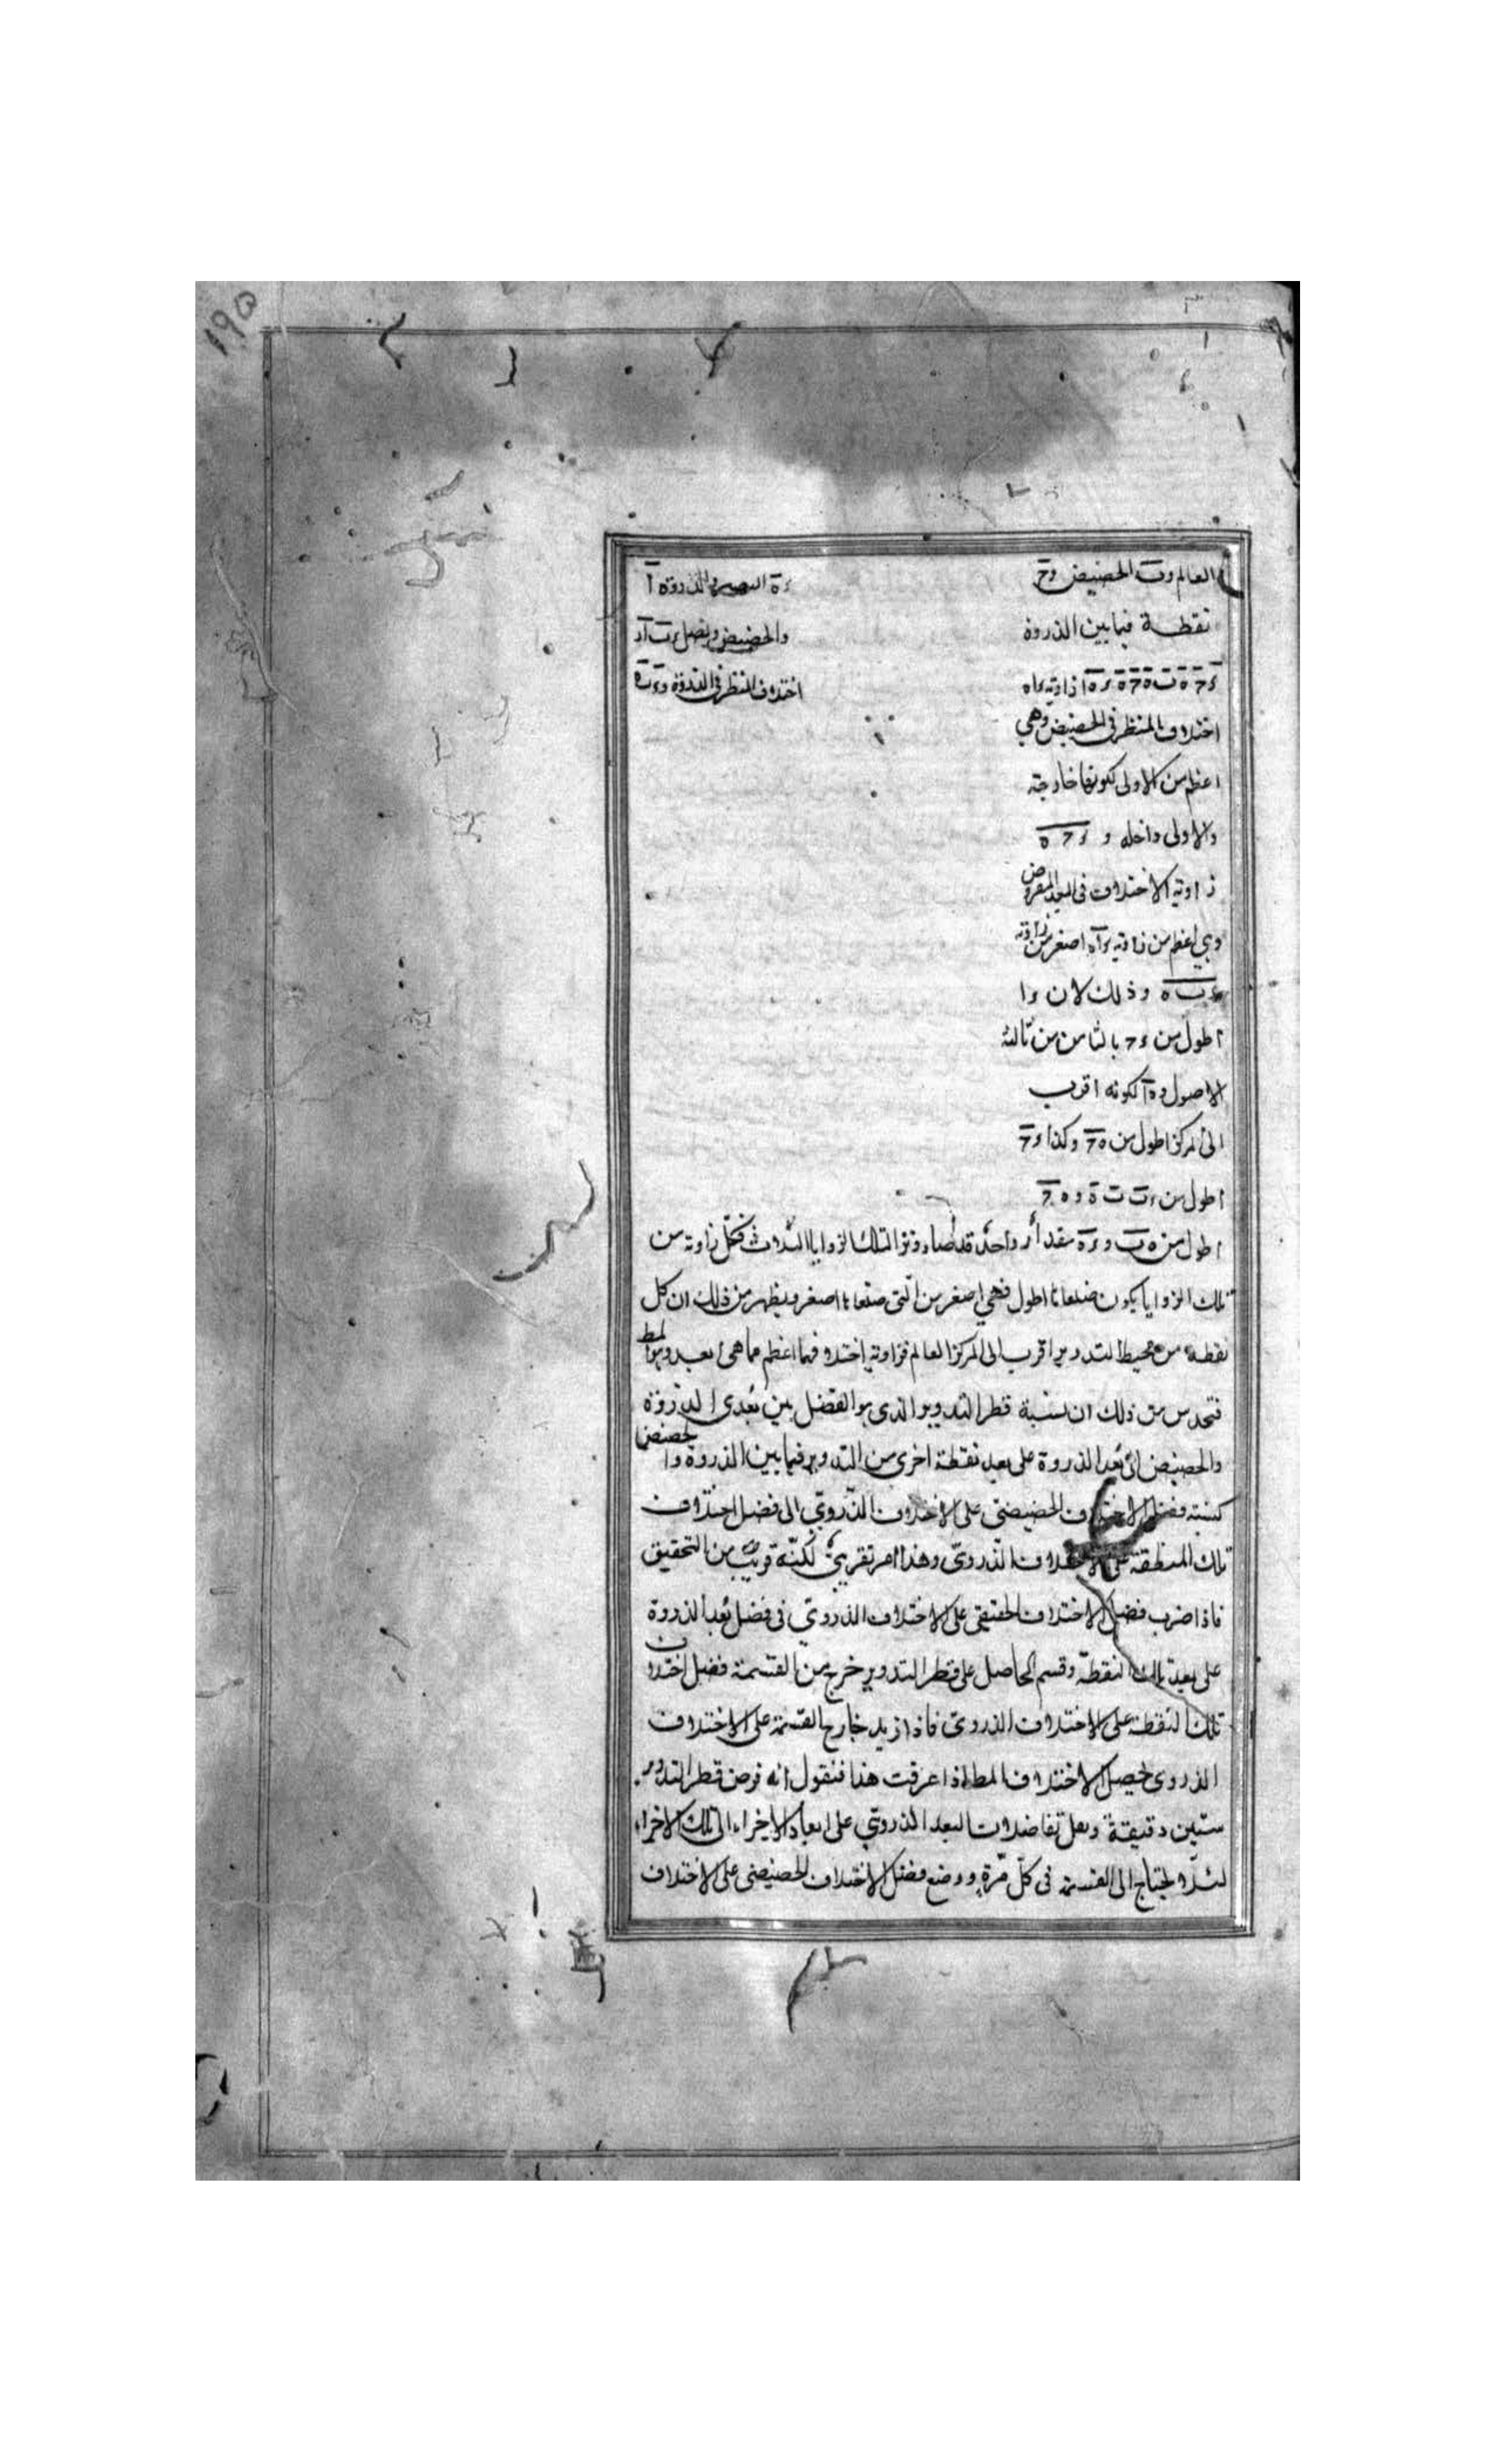 ١٩٥
العالم وب الحضيض وح
ءه البصر والذروة ا
نقطة فيما بين الذروة
والحضيض ونصل ءب ءا
ء ح ه ب ه ح ه ء ه ا زاوية ءاه
اختلاف المنظر فى الذروة وءب ه
اختلاف المنظر فى الحضيض وهى
اعظم من الاولى لكونها خارجة
والاولى داخله و ء ح ه
زاوية الاختلاف فى البعد المفروض
وهى اعظم من زاوية ءاه اصغر من زاوية
ءب ه وذلك لان ءا
اطول من ءح بالثامن من ثالثة
الاصول وه ا لكونه اقرب
الى المركز اطول من ه ح وكذا ءح
اطول من ءب وه ح
اطول من ه ب وءه مقدار واحد قد صار وتر التلك الزوايا الثلاث فكل زاوية من
تلك الزوايا يكون ضلعاها اطول فهى اصغر من التى ضلعاها اصغر ويظهر من ذلك ان كل
نقطة من محيط التدوير اقرب الى المركز العالم فزاوية اختلافها اعظم مما هى ابعد وهو المط
فتحدس من ذلك ان نسبة قطر التدوير الذى هو الفضل بين بُعدى الذروة
والحضيض الى بُعد الذروة على بعد نقطة اخرى من التدوير فيما بين الذروة والحضيض
كنسبة فضل الاختلاف الحضيضى على الاختلاف الذّروىّ الى فضل اختلاف
تلك المنطقة على الاختلاف الذّروىّ وهذا امر تقريبىّ لكنّه قريب من التحقيق
فاذا ضرب فضل الاختلاف الحقيقى على الاختلاف الذروىّ فى فضل بُعد الذروة
على بعد تلك النقطة وقسم الحاصل على قطر التدوير خرج من القسمة فضل اختلاف
تلك النقطة على الاختلاف الذروىّ فاذا زيد خارج القسمة على الاختلاف
الذروى يحصل الاختلاف المط اذا عرفت هذا فنقول انه فرض قطر التدوير
ستين دقيقة وبعل تفاضلات البعد الذروىّ على ابعاد الاجزاء الى تلك الاجزاء
لئلا يحتاج الى القسمة فى كلّ مرّة ووضع فضل الاختلاف الحضيضى على الاختلاف